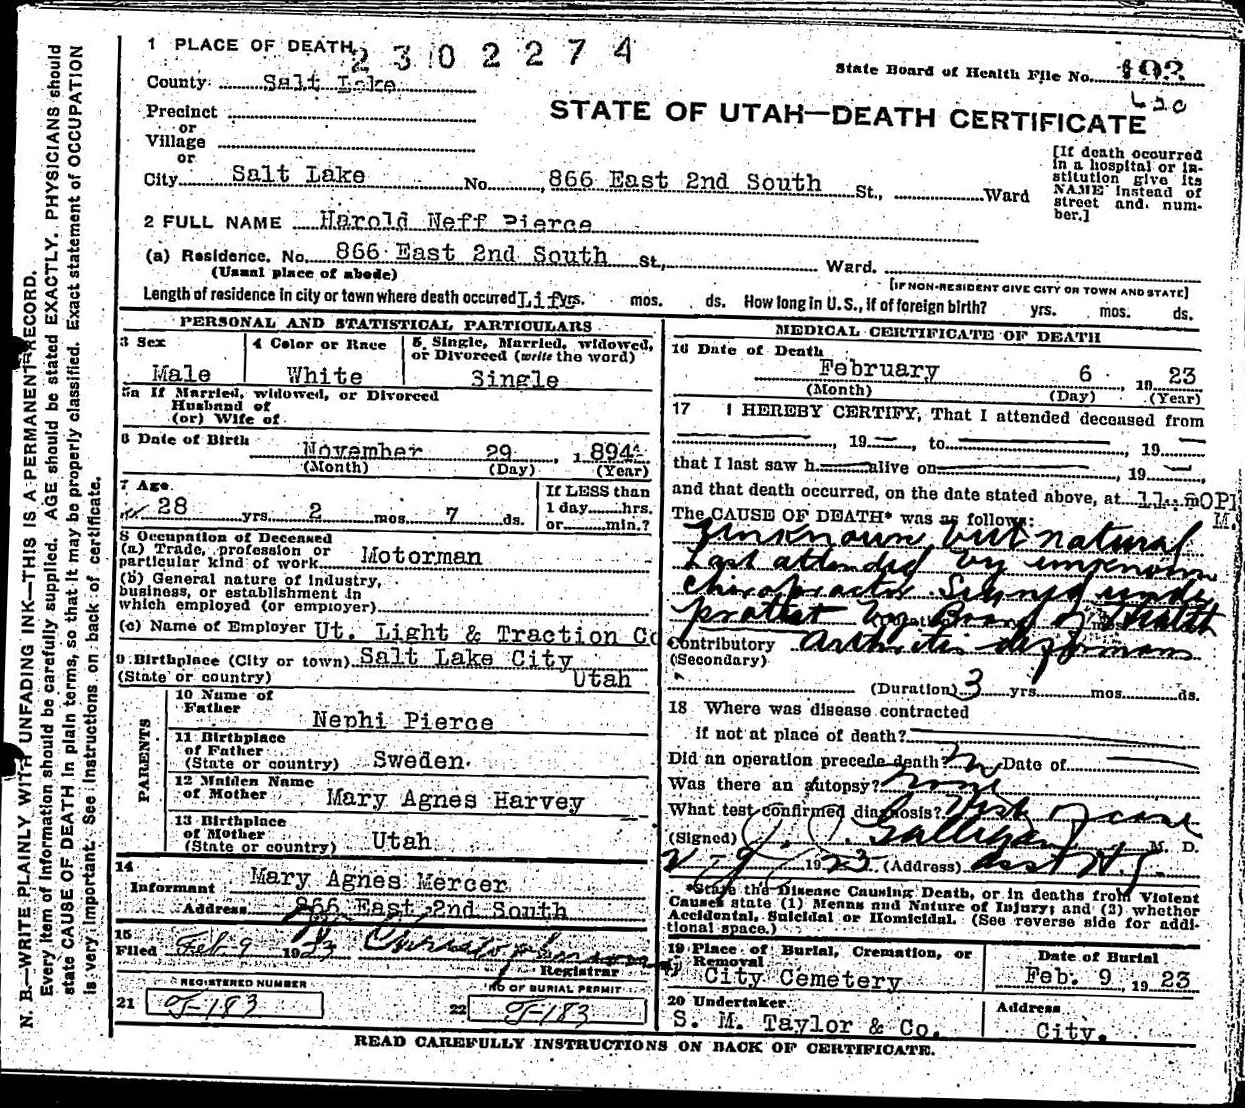 1 PLACE OF DEATH
2302274
State Board of Health File No. 193
620
County Salt Lake
STATE OF UTAH—DEATH CERTIFICATE
Precinct
or
Village
or
City Salt Lake No. 866 East 2nd South St., Ward
[If death occurred in a hospital or institution give its NAME instead of street and number.]
2 FULL NAME Harold Neff Pierce
(a) Residence. No. 866 East 2nd South St., Ward.
(Usual place of abode) [IF NON-RESIDENT GIVE CITY OR TOWN AND STATE]
Length of residence in city or town where death occured Life yrs. mos. ds. How long in U.S., if of foreign birth? yrs. mos. ds.
PERSONAL AND STATISTICAL PARTICULARS
3 Sex
Male
4 Color or Race
White
5. Single, Married, widowed, or Divorced (write the word)
Single
5a If Married, widowed, or Divorced
Husband of
(or) Wife of
6 Date of Birth
November 29, 1894
(Month) (Day) (Year)
7 Age
28 yrs. 2 mos. 7 ds.
If LESS than
1 day hrs.
or min.?
8 Occupation of Deceased
(a) Trade, profession or
particular kind of work Motorman
(b) General nature of industry,
business, or establishment in
which employed (or employer)
(c) Name of Employer Ut. Light & Traction Co
9 Birthplace (City or town) Salt Lake City
(State or country) Utah
PARENTS
10 Name of
Father
Nephi Pierce
11 Birthplace
of Father
(State or country) Sweden.
12 Maiden Name
of Mother Mary Agnes Harvey
13 Birthplace
of Mother
(State or country) Utah
14
Informant Mary Agnes Mercer
Address 866 East 2nd South
15
Filed Feb. 9 1923
Registrar
REGISTERED NUMBER
21 J-183
NO OF BURIAL PERMIT
22 J-183
MEDICAL CERTIFICATE OF DEATH
16 Date of Death
February 6, 1923
(Month) (Day) (Year)
17 I HEREBY CERTIFY, That I attended deceased from
, 19 , to , 19
that I last saw h alive on , 19
and that death occurred, on the date stated above, at 11
M.
The CAUSE OF DEATH* was as follows:
Unknown but natural
Last attended by unknown
chiropractor. Signed under
protest by Board of Health
Contributory Arthritis deformans
(Secondary)
(Duration) 3 yrs. mos. ds.
18 Where was disease contracted
if not at place of death?
Did an operation precede death? No Date of
Was there an autopsy? None
What test confirmed diagnosis? Hist of case
(Signed) J. J. Galligan M. D.
2-9 1923 (Address) asst H.C.
*State the Disease Causing Death, or in deaths from Violent
Causes state (1) Menns and Nature of Injury; and (2) whether
Accidental, Suicidal or Homicidal. (See reverse side for additional space.)
19 Place of Burial, Cremation, or
Removal
City Cemetery
Date of Burial
Feb. 9, 1923
20 Undertaker
S. M. Taylor & Co.
Address
City.
READ CAREFULLY INSTRUCTIONS ON BACK OF CERTIFICATE.
N. B.—WRITE PLAINLY WITH UNFADING INK—THIS IS A PERMANENT RECORD.
Every item of information should be carefully supplied. AGE should be stated EXACTLY. PHYSICIANS should
state CAUSE OF DEATH in plain terms, so that it may be properly classified. Exact statement of OCCUPATION
is very important. See instructions on back of certificate.